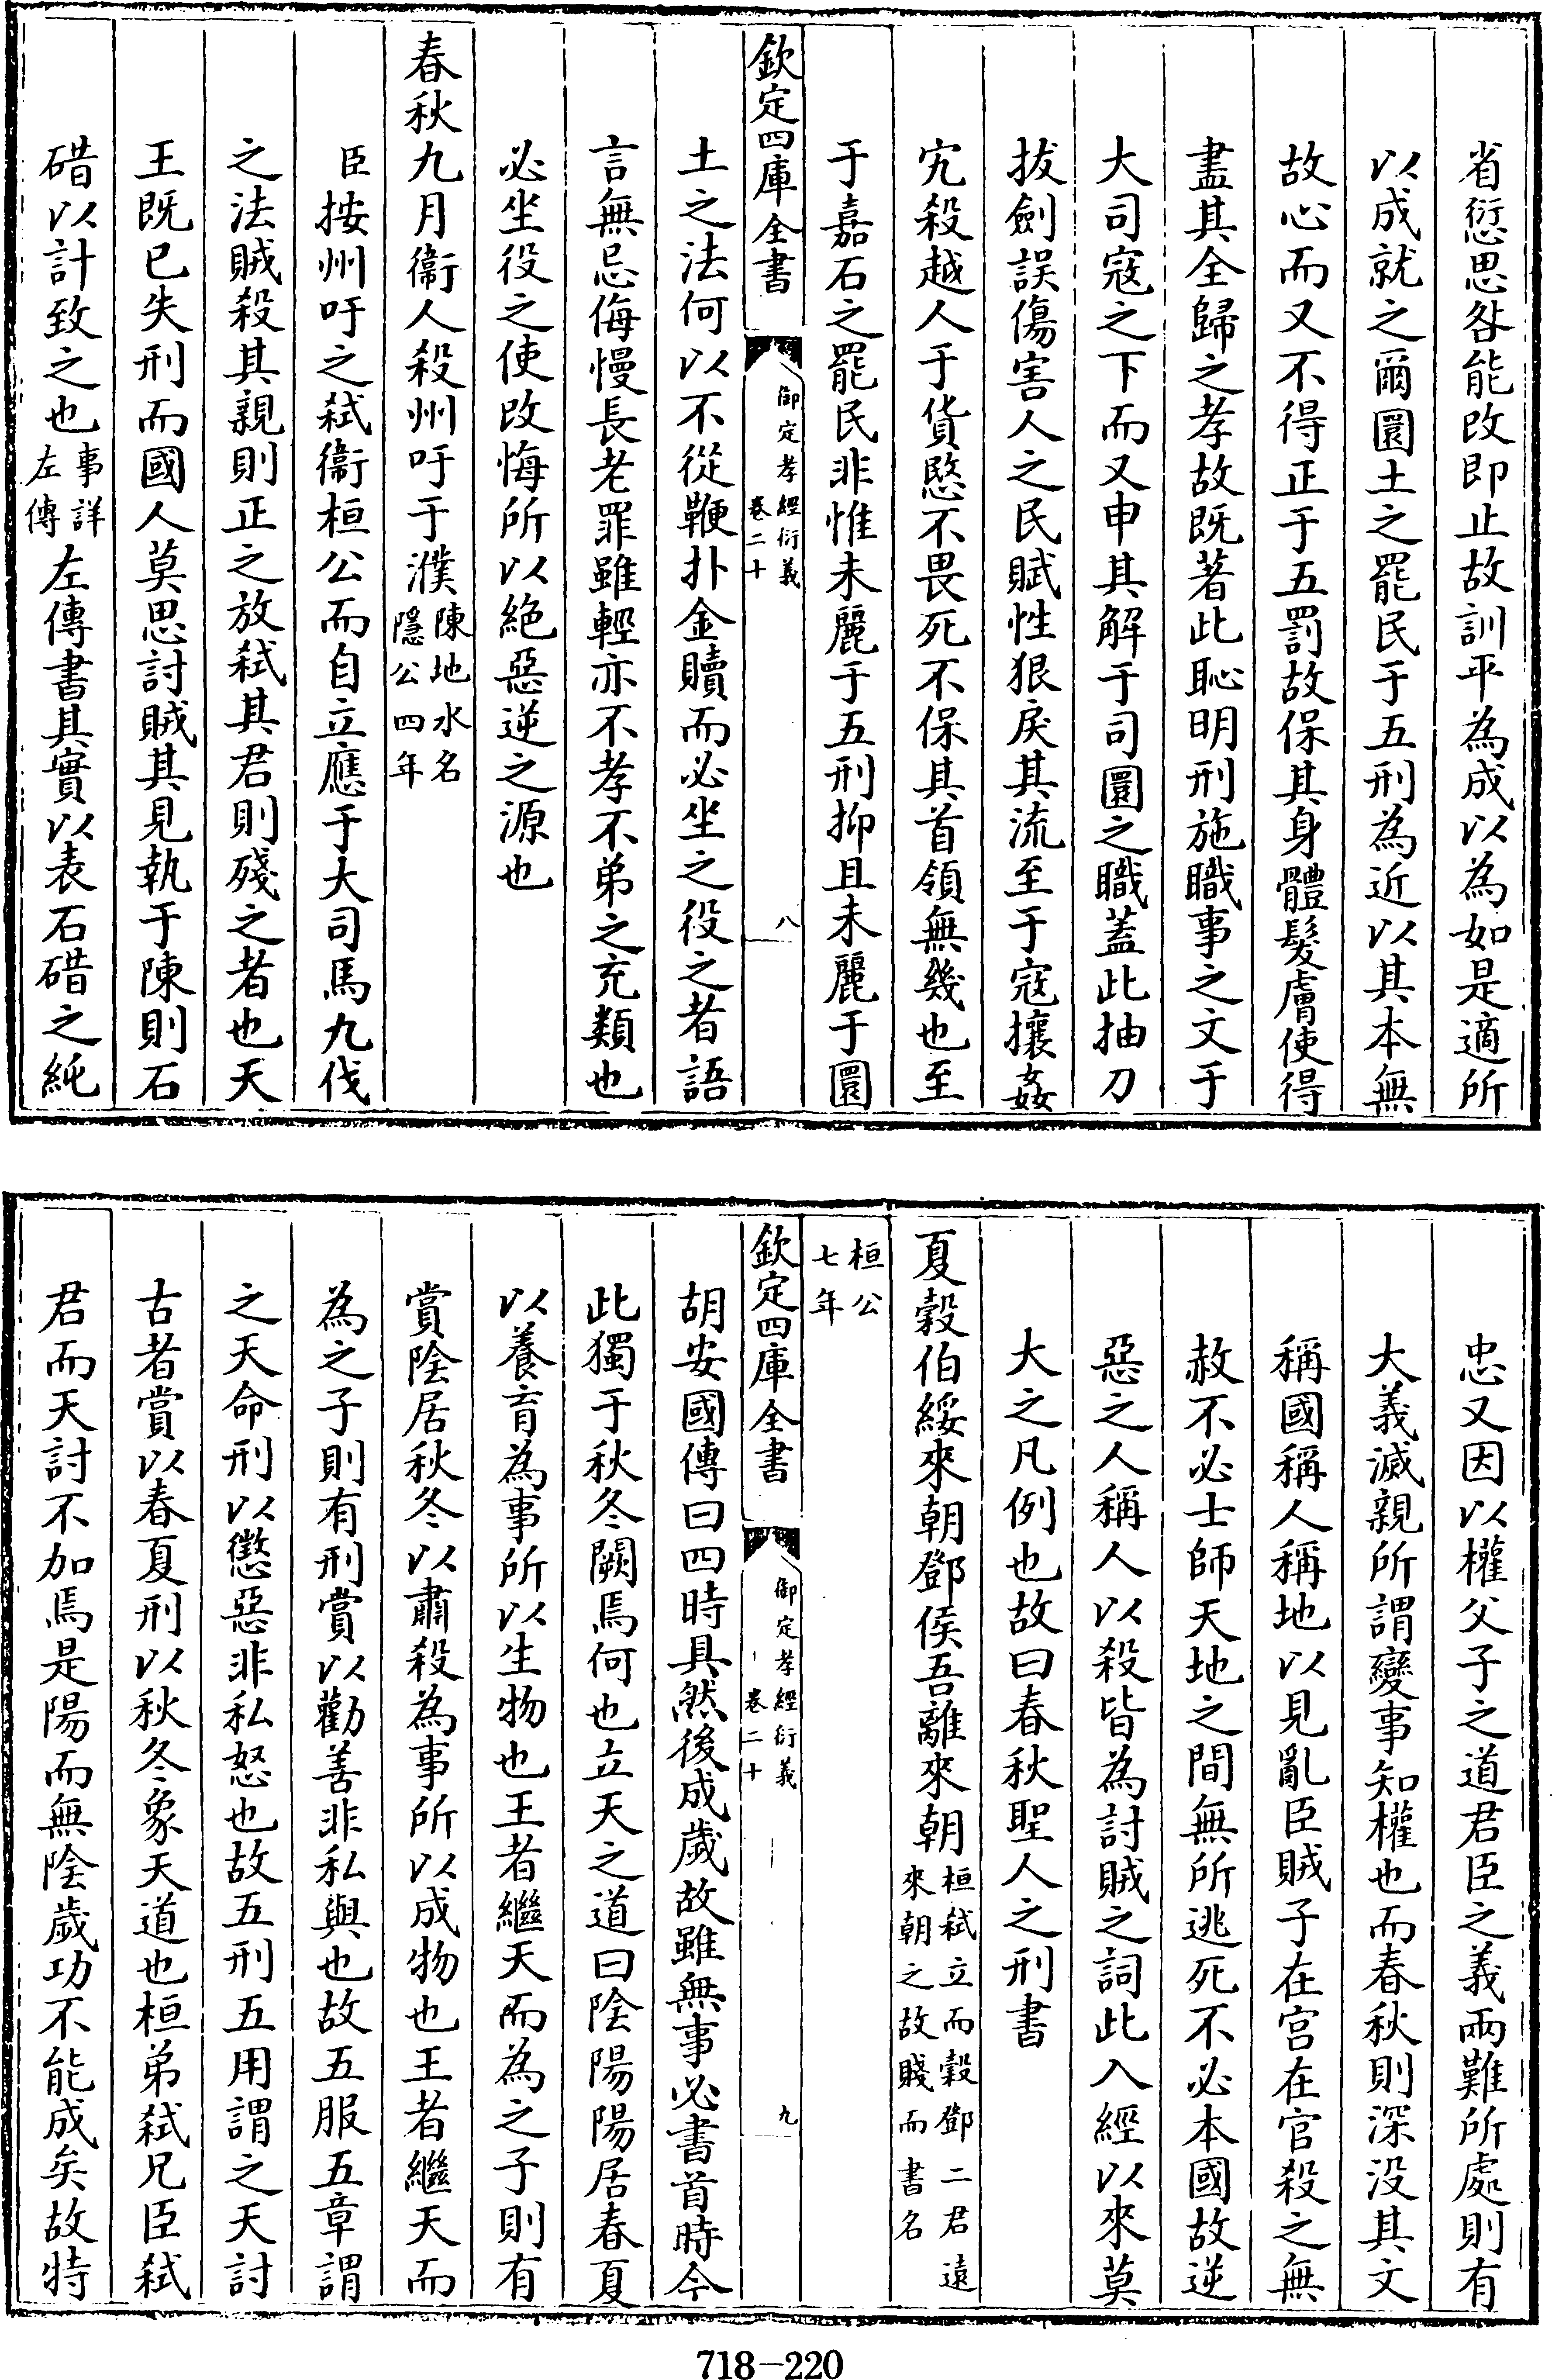 省愆思咎能改即止故訓平為成以為如是適所
以成就之爾圜土之罷民于五刑為近以其本無
故心而又不得正于五罰故保其身體髮膚使得
盡其全歸之孝故既著此恥明刑施職事之文于
大司寇之下而又申其解于司圜之職蓋此抽刀
拔劍誤傷害人之民賦性狠戾其流至于寇攘姦
宄殺越人于貨愍不畏死不保其首領無幾也至
于嘉石之罷民非惟未麗于五刑抑且未麗于圜
欽定四庫全書 御定孝經衍義 卷二十 八
土之法何以不從鞭扑金贖而必坐之役之者語
言無忌侮慢長老罪雖輕亦不孝不弟之充類也
必坐役之使改悔所以絕惡逆之源也
春秋九月衞人殺州吁于濮陳地水名隱公四年
臣按州吁之弒衞桓公而自立應于大司馬九伐
之法賊殺其親則正之放弒其君則殘之者也天
王既已失刑而國人莫思討賊其見執于陳則石
碏以計致之也事詳左傳左傳書其實以表石碏之純
忠又因以權父子之道君臣之義兩難所處則有
大義滅親所謂變事知權也而春秋則深没其文
稱國稱人稱地以見亂臣賊子在宫在官殺之無
赦不必士師天地之間無所逃死不必本國故逆
惡之人稱人以殺皆為討賊之詞此入經以來莫
大之凡例也故曰春秋聖人之刑書
夏穀伯綏來朝鄧侯吾離來朝桓弒立而穀鄧二君遠來朝之故賤而書名
桓公七年
欽定四庫全書 御定孝經衍義 卷二十 九
胡安國傳曰四時具然後成歲故雖無事必書首時今
此獨于秋冬闕焉何也立天之道曰陰陽陽居春夏
以養育為事所以生物也王者繼天而為之子則有
賞陰居秋冬以肅殺為事所以成物也王者繼天而
為之子則有刑賞以勸善非私與也故五服五章謂
之天命刑以懲惡非私怒也故五刑五用謂之天討
古者賞以春夏刑以秋冬象天道也桓弟弒兄臣弒
君而天討不加焉是陽而無陰歲功不能成矣故特
718-220